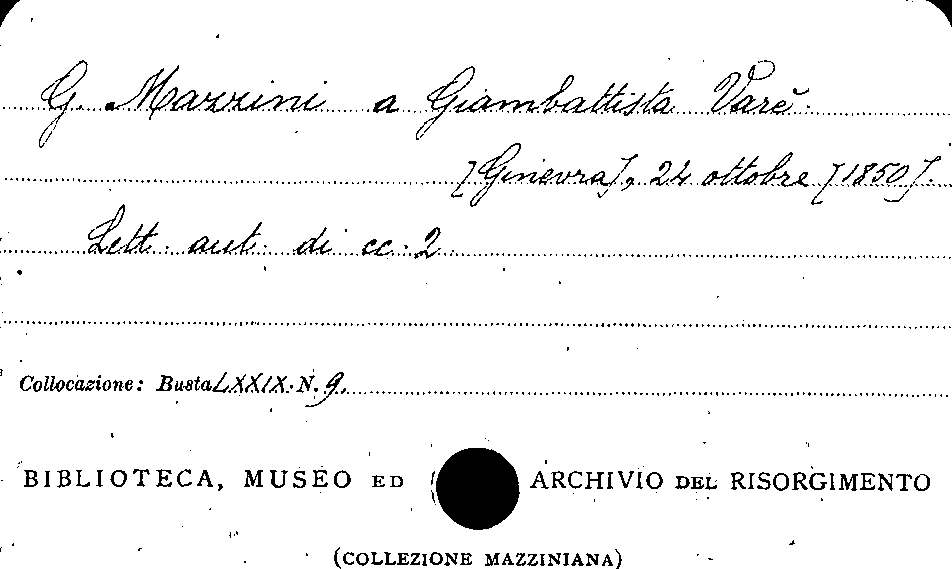 G. Mazzini a Giambattista Varè.
[Ginevra], 24 ottobre [1850].
Lett. aut. di cc. 2
Collocazione: Busta LXXIX. N. 9.
BIBLIOTECA, MUSEO ED ARCHIVIO DEL RISORGIMENTO
(COLLEZIONE MAZZINIANA)